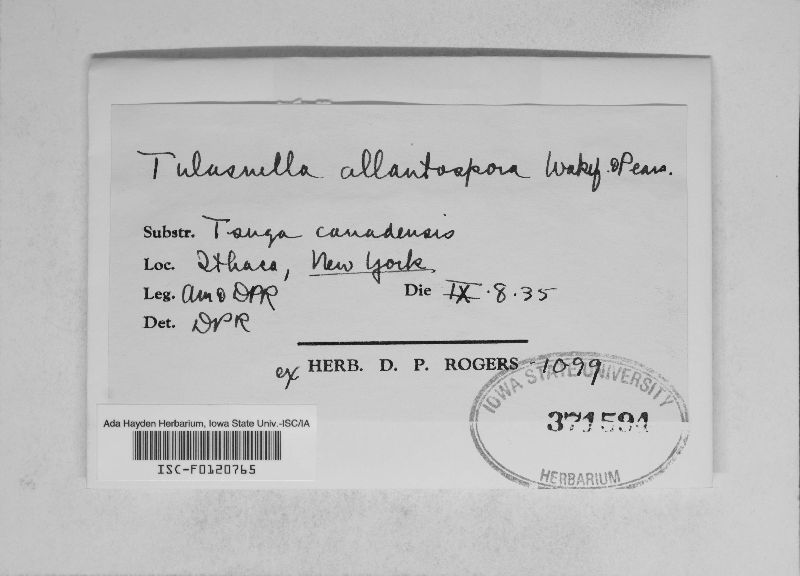 Tulasnella allantospora Wakef. & Pears.
Substr. Tsuga canadensis
Loc. Ithaca, New York
Leg. DPR
Die IX.8.35
Det. DPR
ex HERB. D. P. ROGERS 1099
IOWA STATE UNIVERSITY
371594
HERBARIUM
Ada Hayden Herbarium, Iowa State Univ.-ISC/IA
ISC-F0120765